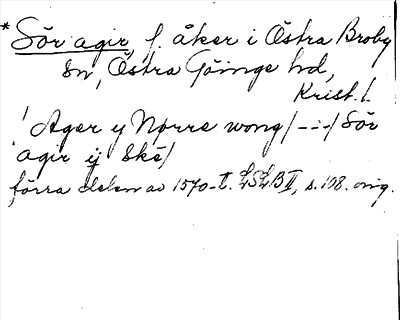 * Sör agir, f. åker i Östra Broby
sn, Östra Göinge hd,
Krist. l.
! Ager y Norre wong / -:- / Sör
agir ij Ske /
förra delen av 1570-t. LSLB II, s. 108. orig.